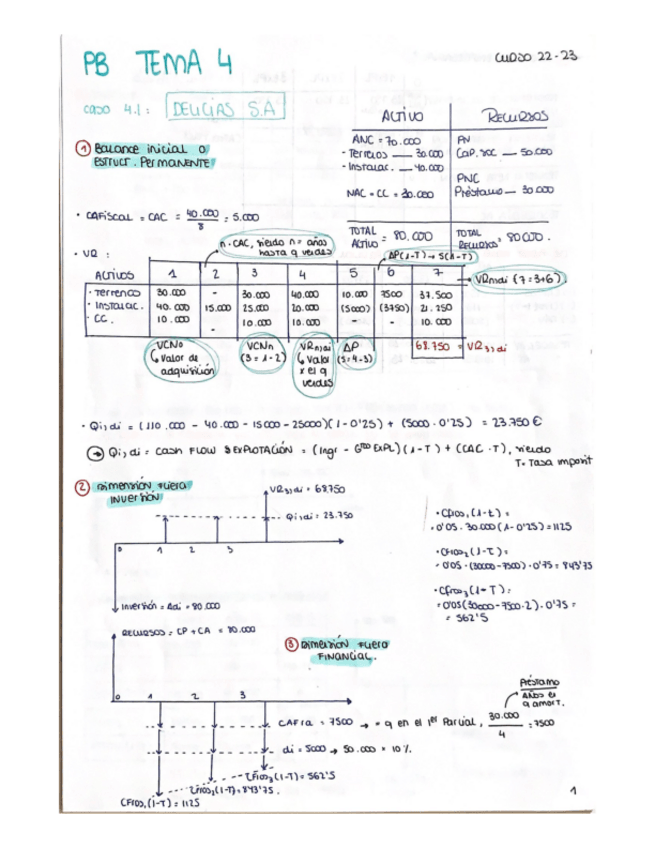 PB TEMA 4
CURSO 22-23
caso 4.1: DELICIAS S.A
ACTIVO RECURSOS
① Balance inicial o
ESTRUCT. PERMANENTE
ANC = 70.000 PN
- Terrenos — 30.000 Cap. soc — 50.000
- Instalac. — 40.000
PNC
NAC = CC = 30.000 Préstamo — 30.000
TOTAL ACTIVO = 80.000 TOTAL RECURSOS = 80.000.
· CAFiscal = CAC = 40.000/8 = 5.000
n·CAC, siendo n = años
hasta q vendes
ΔP(1-T) → S(1-T)
· VR :
ACTIVOS 1 2 3 4 5 6 7
VRn,di (7=3+6)
· Terreno 30.000 - 30.000 40.000 10.000 7500 37.500
· Instalac. 40.000 15.000 25.000 20.000 (5000) (3750) 21.250
· CC. 10.000 - 10.000 10.000 - - 10.000
68.750 = VR3,di
VCN0
↳ Valor de
adquisición
VCNn
(3 = 1-2)
VRn,di
↳ Valor
x el q
vendes
ΔP
(5=4-3)
· Qi,di = (110.000 - 40.000 - 15000 - 25000)(1-0'25) + (5000·0'25) = 23.750 €
→ Qi,di = CASH FLOW EXPLOTACIÓN = (Ingr - Gtos EXPL)(1-T) + (CAC·T), siendo
T = Tasa imposit
② Dimensión Fuera
INVERSIÓN
VR3,di = 68.750
Qi,di = 23.750
0 1 2 3
Inversión = Adi = 80.000
· CFio1(1-t) =
= 0'05·30.000(1-0'25) = 1125
· CFio2(1-T) =
= 0'05·(30000-7500)·0'75 = 843'75
· CFio3(1-T) =
= 0'05(30000-7500·2)·0'75 =
= 562'5
RECURSOS = CP + CA = 80.000
③ Dimensión Fuera
FINANCIAL.
0 1 2 3
Préstamo
Años en
q amort.
CAFra = 7500 → = q en el 1er Parcial, 30.000/4 = 7500
di = 5000 → 50.000 × 10%.
CFio3(1-T) = 562'5
CFio2(1-T) = 843'75.
CFio1(1-T) = 1125
1